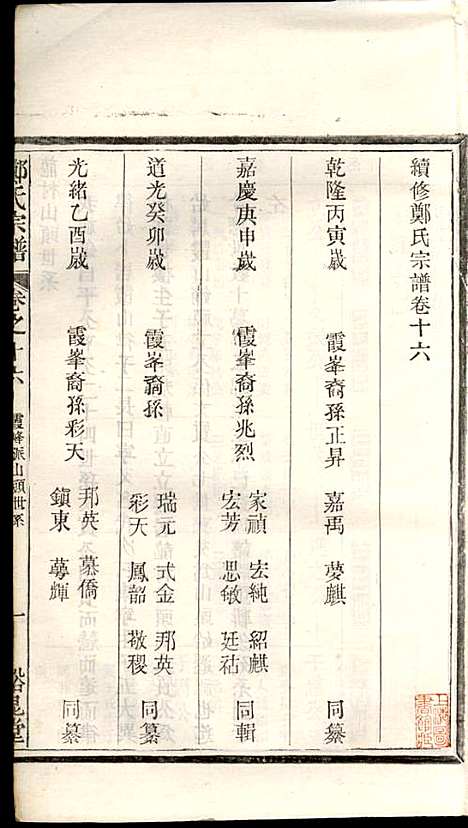 續修鄭氏宗譜卷十六
乾隆丙寅歲 霞峯裔孫正昇 嘉禹 夢麒 同纂
嘉慶庚申歲 霞峯裔孫兆烈 家禎 宏純 紹麒 宏芳 思敏 廷祜 同輯
道光癸卯歲 霞峯裔孫 瑞元 式金 邦英 彩天 鳳韶 敬稷 同纂
光緒乙酉歲 霞峯裔孫彩天 邦英 慕僑 鎮東 蕚輝 同纂
鄭氏宗譜 卷之十六 霞峰派山頭世系 一